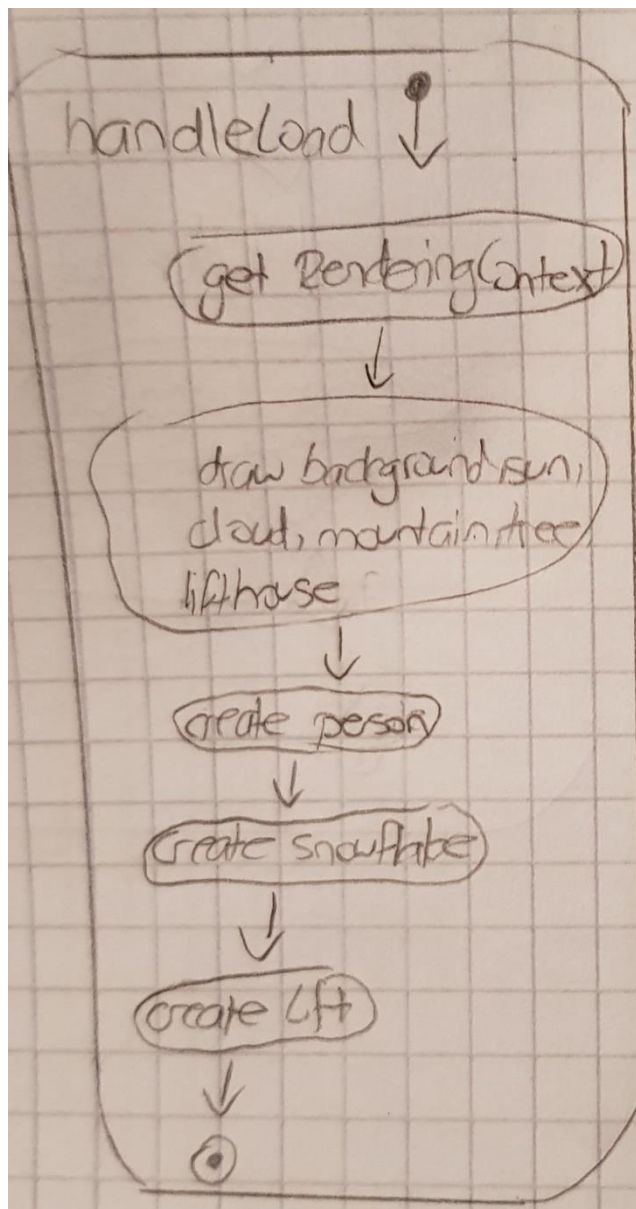 handleLoad
get RenderingContext
draw background, sun,
cloud, mountain, tree
lifthouse
create person
create snowflake
create Lift